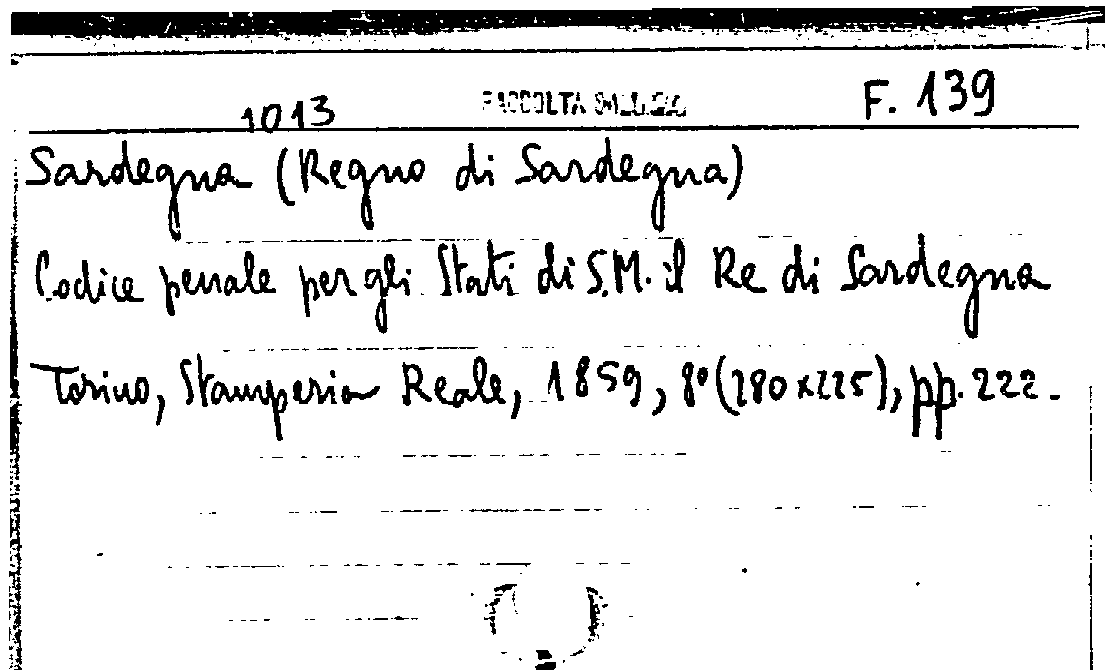 1013 RACCOLTA F. 139
Sardegna (Regno di Sardegna)
Codice penale per gli Stati di S.M. il Re di Sardegna
Torino, Stamperia Reale, 1859, 8° (280x225), pp. 222.